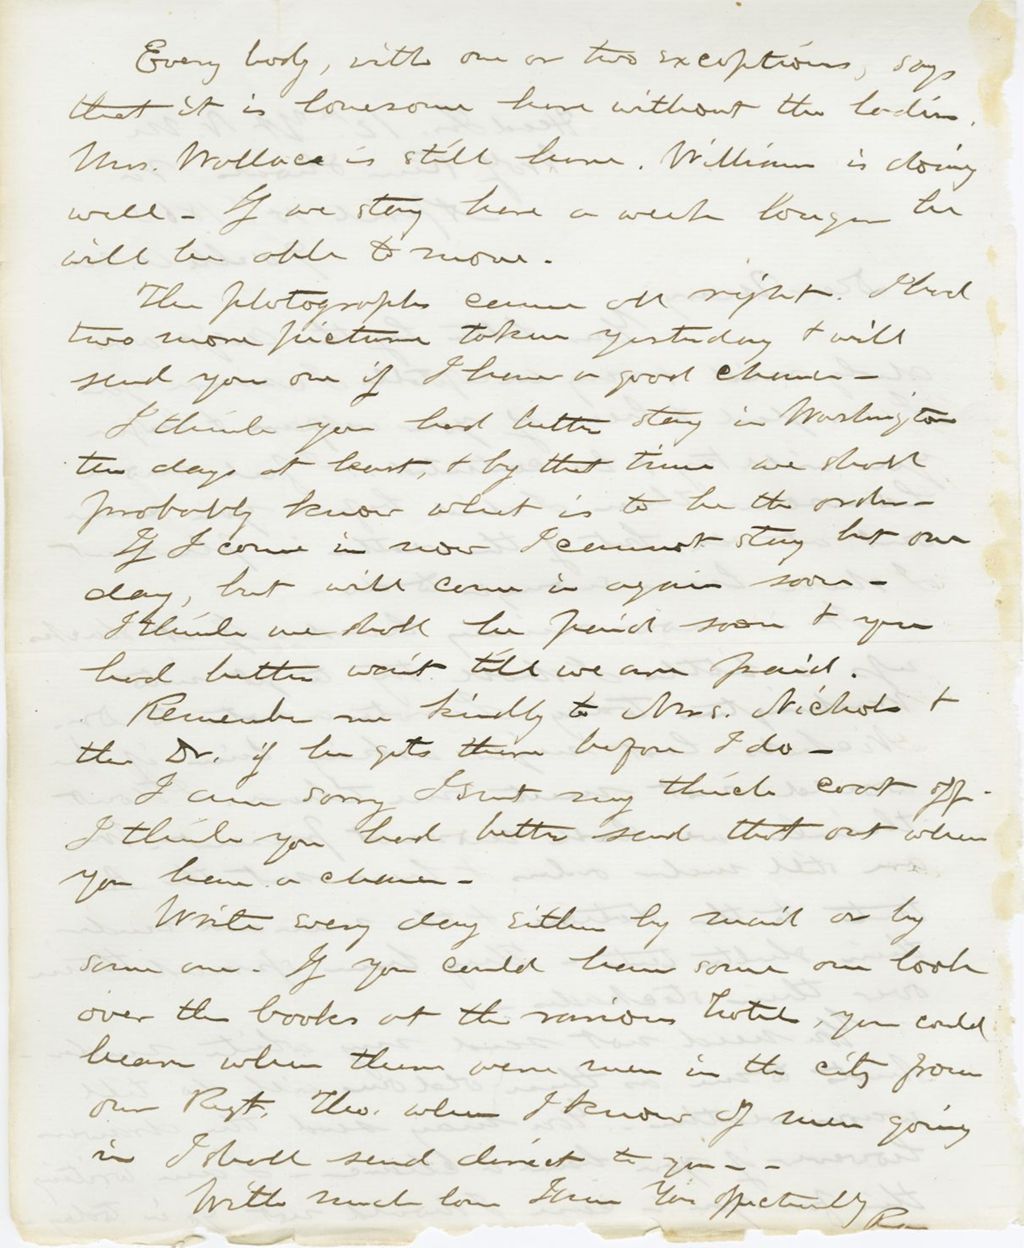 Every body, with one or two exceptions, says
that it is lonesome here without the ladies.
Mrs. Wallace is still here. William is doing
well - If we stay here a week longer he
will be able to move.
The photographs came all right. I had
two more pictures taken yesterday & will
send you one if I have a good chance -
I think you had better stay in Washington
ten days at least, & by that time we shall
probably know what is to be the order -
If I come in now I cannot stay but one
day, but will come in again soon -
I think we shall be paid soon & you
had better wait till we are paid.
Remember me kindly to Mrs. Nichols &
the Dr. if he gets there before I do -
I am sorry I sent my thick coat off -
I think you had better send that out when
you have a chance -
Write every day either by mail or by
some one. If you could have some one look
over the books at the various hotels, you could
learn when there were men in the city from
our Regt. Tho. when I know of men going
in I shall send direct to you - -
With much love I am Yrs affectionately